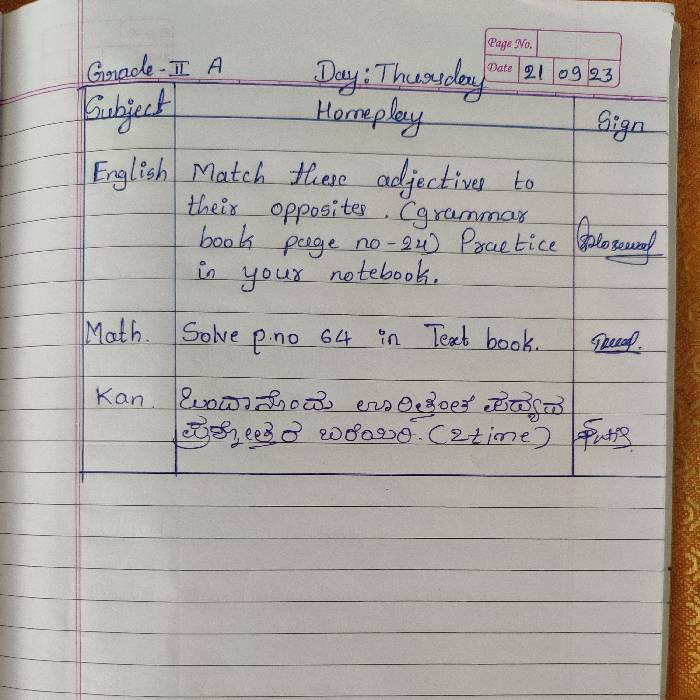 Page No.
Grade - II A Day: Thursday Date 21 09 23
Subject Homeplay Sign
English Match these adjectives to
their opposites. (grammar
book page no - 24) Practice
in your notebook.
Math. Solve p.no 64 in Text book.
Kan. ಒಂದಾನೊಂದು ಪದ್ಯದ
ಪ್ರಶ್ನೋತ್ತರ ಬರೆಯಿರಿ. (2 time)